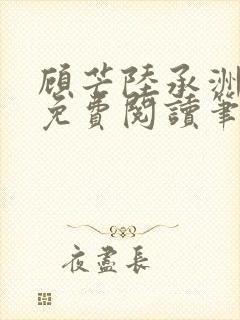 顾芒陸承洲
免費閱讀筆
夜盡長